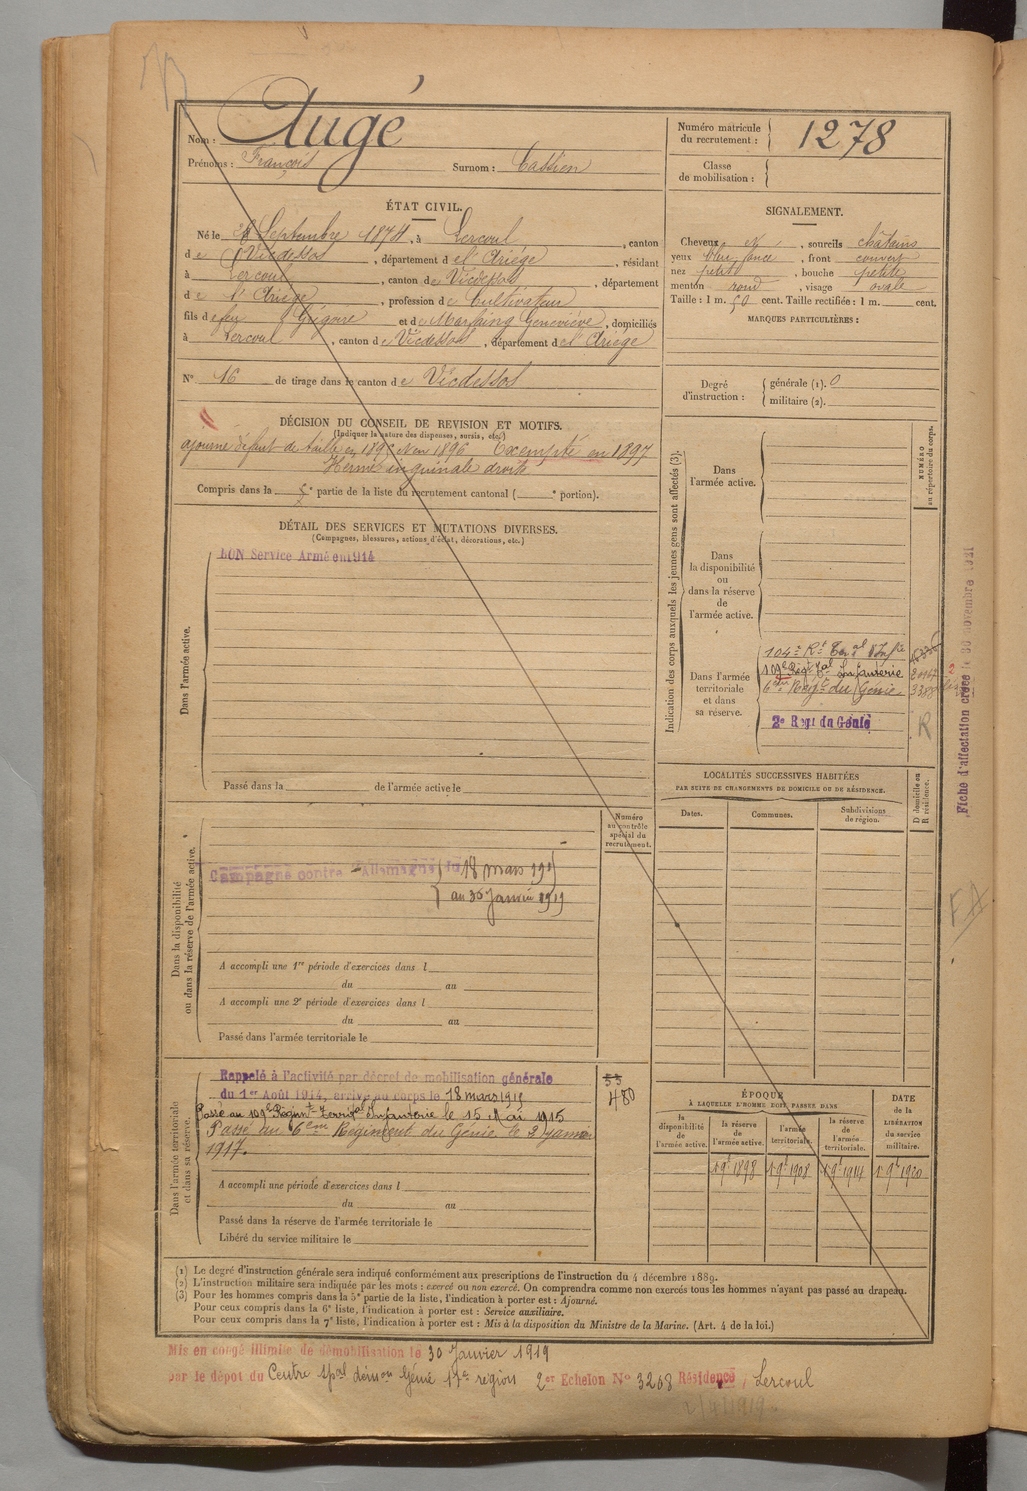 Nom : Augé
Prénoms : François Surnom : Cassien
Numéro matricule du recrutement : 1278
Classe de mobilisation :
ÉTAT CIVIL.
Né le 26 Septembre 1874, à Lercoul, canton
de Vicdessos, département de l'Ariège, résidant
à Lercoul, canton de Vicdessos, département
de l'Ariège, profession de Cultivateur
fils de feu Grégoire et de Marfaing Geneviève, domiciliés
à Lercoul, canton de Vicdessos, département de l'Ariège
N° 16 de tirage dans le canton de Vicdessos
SIGNALEMENT.
Cheveux et, sourcils châtains
yeux bleu foncé, front couvert
nez petit, bouche petite
menton rond, visage ovale
Taille : 1 m. 50 cent. Taille rectifiée : 1 m. cent.
MARQUES PARTICULIÈRES :
Degré d'instruction : générale (1). 0
militaire (2).
DÉCISION DU CONSEIL DE REVISION ET MOTIFS.
(Indiquer la nature des dispenses, sursis, etc.)
ajourné défaut de taille en 1895 et en 1896 Exempté en 1897
Hernie inguinale droite
Compris dans la 5e partie de la liste du recrutement cantonal ( e portion).
DÉTAIL DES SERVICES ET MUTATIONS DIVERSES.
(Campagnes, blessures, actions d'éclat, décorations, etc.)
BON Service Armé en 1914
Dans l'armée active.
Passé dans la de l'armée active le
Indication des corps auxquels les jeunes gens sont affectés (3).
NUMÉRO au répertoire du corps.
Dans l'armée active.
Dans la disponibilité ou dans la réserve de l'armée active.
Dans l'armée territoriale et dans sa réserve.
104e Rt Ter al d'Infie
109e Régt Tal Infanterie
6ème Regt du Génie 3388
2e Regt du Génie R
Fiche d'affectation créée le 30 novembre 1921
LOCALITÉS SUCCESSIVES HABITÉES
PAR SUITE DE CHANGEMENTS DE DOMICILE OU DE RÉSIDENCE.
Dates. Communes. Subdivisions de région. D domicile ou R résidence.
Numéro au contrôle spécial du recrutement.
Dans la disponibilité ou dans la réserve de l'armée active.
Campagne contre l'Allemagne du 18 mars 1915
au 30 Janvier 1919
A accompli une 1re période d'exercices dans l
du au
A accompli une 2e période d'exercices dans l
du au
Passé dans l'armée territoriale le
Dans l'armée territoriale et dans sa réserve.
Rappelé à l'activité par décret de mobilisation générale
du 1er Août 1914, arrivé au corps le 18 mars 1915
Passé au 109e Régimt Territal Infanterie le 15 Mai 1915
Passé au 6ème Régiment du Génie le 2 janvier
1917.
53
480
A accompli une période d'exercices dans l
du au
Passé dans la réserve de l'armée territoriale le
Libéré du service militaire le
ÉPOQUE
À LAQUELLE L'HOMME DOIT PASSER DANS
la disponibilité de l'armée active. la réserve de l'armée active. l'armée territoriale. la réserve de l'armée territoriale. DATE de la LIBÉRATION du service militaire.
1 9e 1898 1 9e 1908 1 9e 1914 1 9e 1920
(1) Le degré d'instruction générale sera indiqué conformément aux prescriptions de l'instruction du 4 décembre 1889.
(2) L'instruction militaire sera indiquée par les mots : exercé ou non exercé. On comprendra comme non exercés tous les hommes n'ayant pas passé au drapeau.
(3) Pour les hommes compris dans la 5e partie de la liste, l'indication à porter est : Ajourné.
Pour ceux compris dans la 6e liste, l'indication à porter est : Service auxiliaire.
Pour ceux compris dans la 7e liste, l'indication à porter est : Mis à la disposition du Ministre de la Marine. (Art. 4 de la loi.)
Mis en congé illimité de démobilisation le 30 Janvier 1919
par le dépôt du Centre spal démon Génie 17e région 2er Echelon N° 3208 Résidence : Lercoul